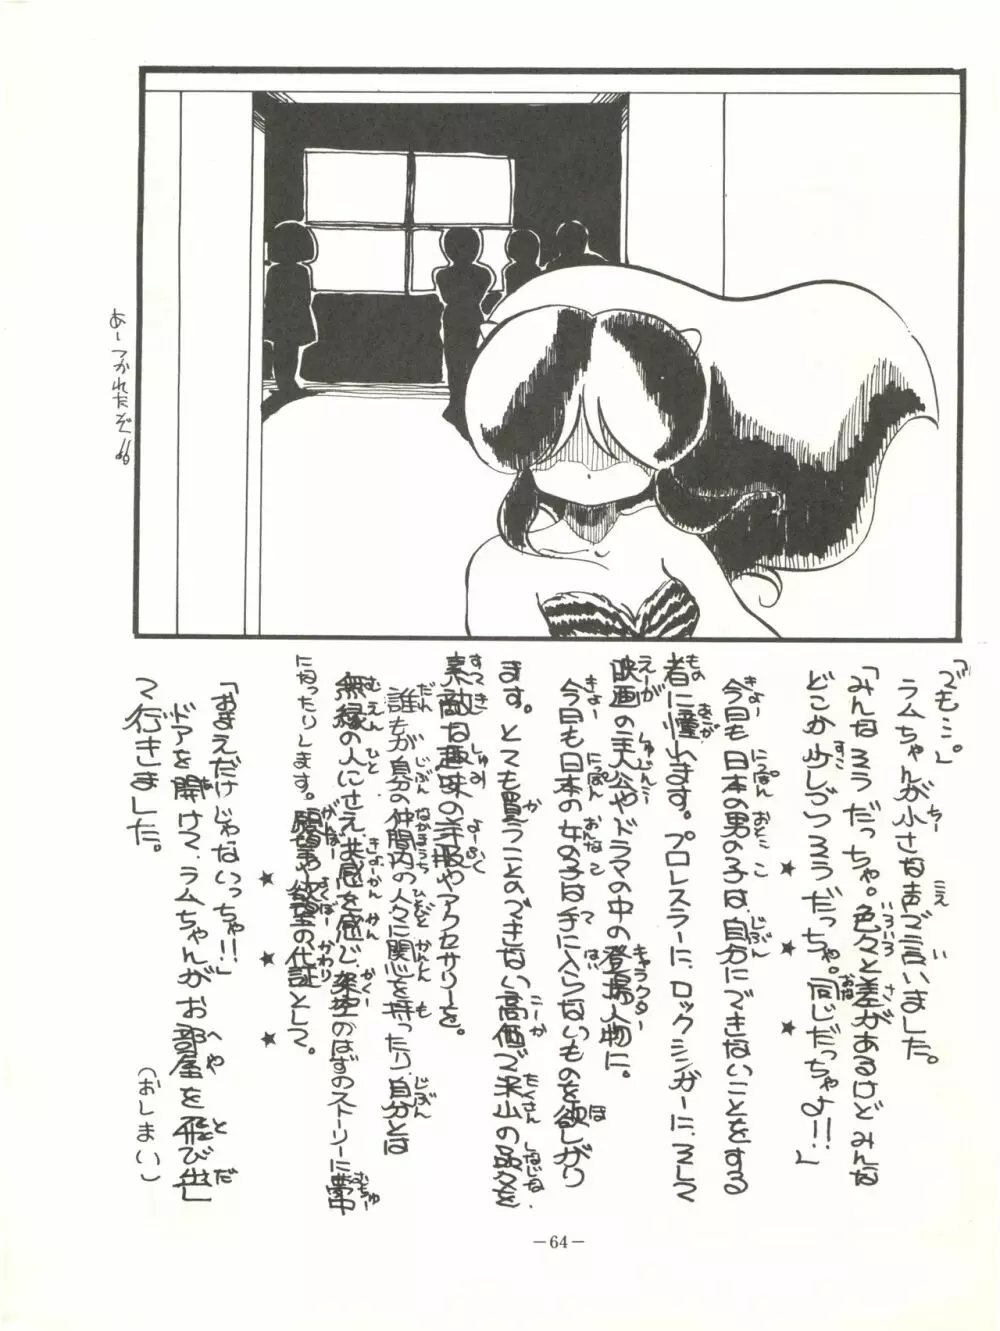 「でも…。」
ラムちゃんが小さな声で言いました。
「みんなそうだっちゃ。色々と差があるけどみんな
どこか少しづつそうだっちゃ。同じだっちゃよ!!」
★ ★ ★
今日も日本の男の子は、自分にできないことをする
者に憧れます。プロレスラーに、ロックシンガーに、そして
映画の主人公やドラマの中の登場人物に。
今日も日本の女の子は手に入らないものを欲しがり
ます。とても買うことのできない高価で沢山の品々を
素敵な趣味の洋服やアクセサリーを。
誰もが自分の仲間内の人々に関心を持ったり、自分とは
無縁の人にさえ共感を感じ、架空のはずのストーリーに夢中
になったりします。願望や欲望の代証として。
★ ★ ★
「おまえだけじゃないっちゃ!!」
ドアを開けて、ラムちゃんがお部屋を飛び出し
て行きました。
(おしまい)
あーつかれたぞ!!
―64―